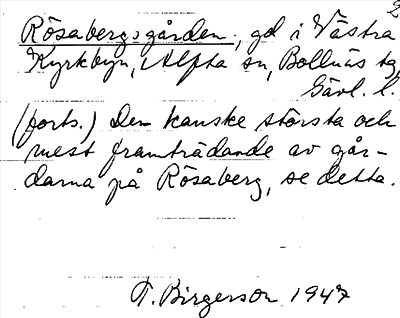 2
Rösabergsgården, gd i Västra
Kyrkbyn, Alfta sn, Bollnäs tg
Gävl. l.
(forts.) Den kanske största och
mest framträdande av går-
darna på Rösaberg, se detta.
T. Birgerson 1947